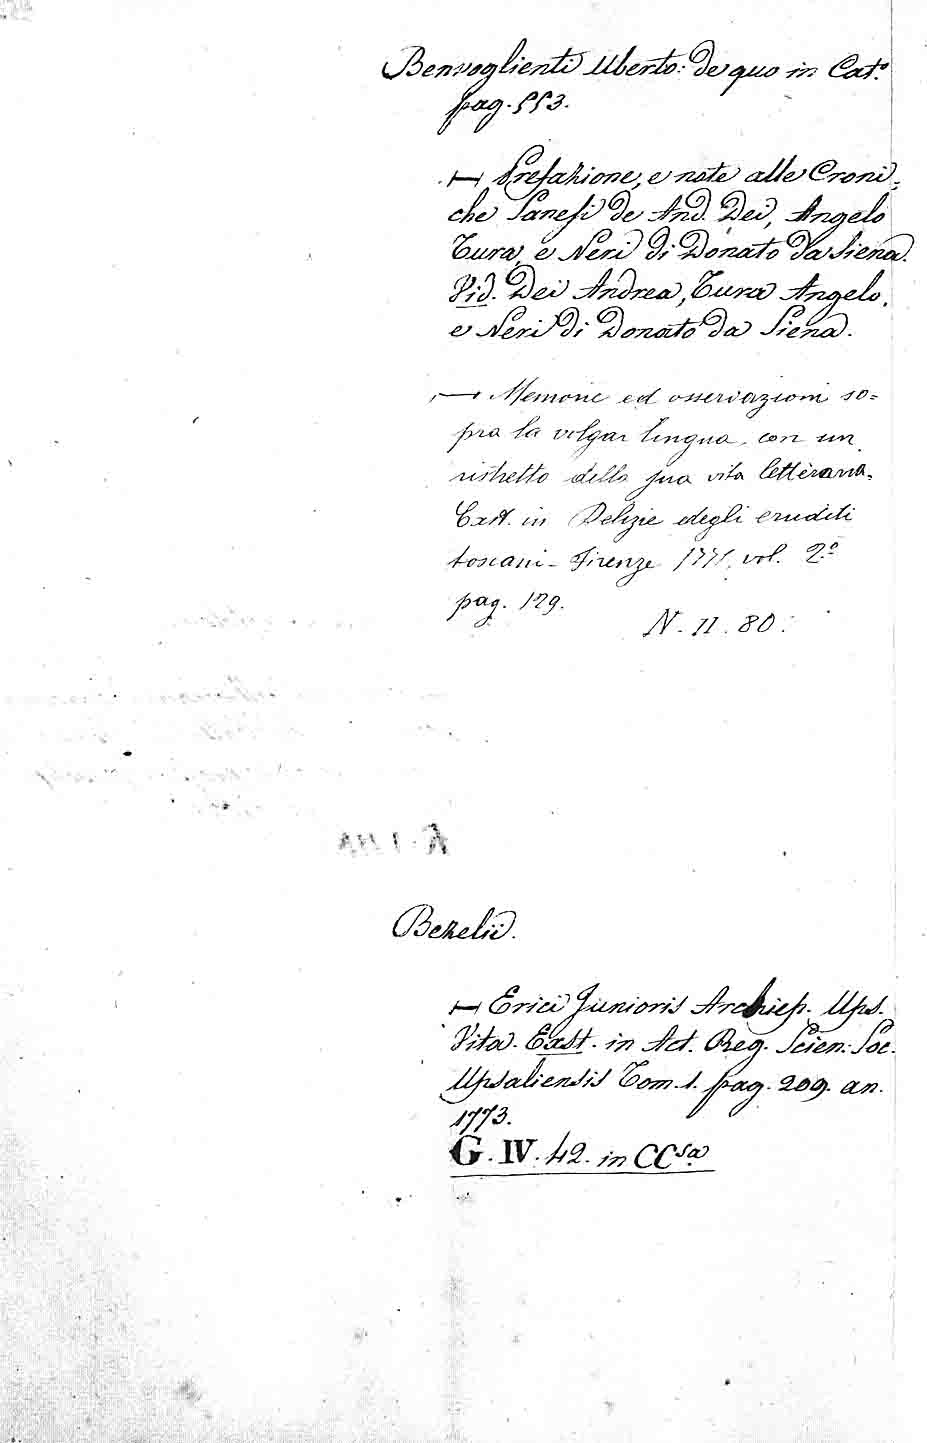 Benvoglienti Uberto: de quo in Cat.º
pag. 553.
— Prefazione, e note alle Croni=
che Sanesi de And. Dei, Angelo
Tura, e Neri di Donato da Siena.
Vid. Dei Andrea, Tura Angelo,
e Neri di Donato da Siena.
— Memorie ed osservazioni so=
pra la volgar lingua, con un
ristretto della sua vita letteraria.
Exst. in Delizie degli eruditi
toscani - Firenze 1771, vol. 2º
pag. 129.
N. II. 80.
Bezelii.
— Erici Junioris Archiep. Ups.
Vita. Exst. in Act. Reg. Scien. Soc.
Upsaliensis Tom. 1. pag. 209. an.
1773.
G. IV. 42. in CCsa